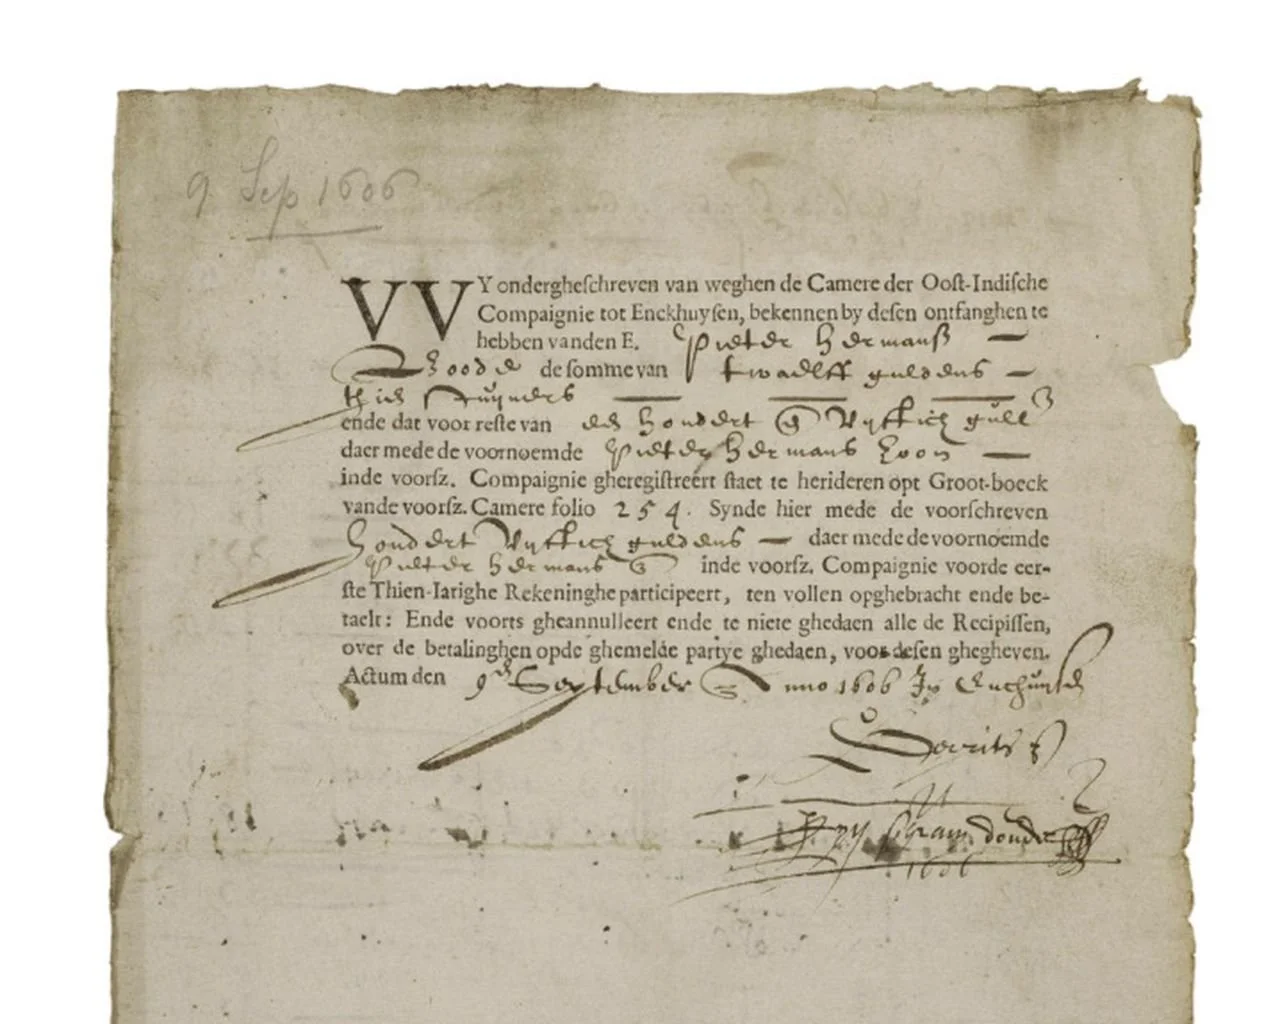 9 Sep 1606
VVY ondergheschreven van weghen de Camere der Oost-Indische
Compaignie tot Enckhuysen, bekennen by desen ontfanghen te
hebben vanden E. Pieter Hermansz
de somme van twaelff guldens
ende dat voor reste van een hondert vyftich gull
daer mede de voornoemde Pieter Hermans Zoon
inde voorsz. Compaignie gheregistreert staet te herideren opt Groot-boeck
vande voorsz. Camere folio 254. Synde hier mede de voorschreven
hondert vyftich guldens daer mede de voornoemde
Pieter Hermans inde voorsz. Compaignie voorde eer-
ste Thien-Iarighe Rekeninghe participeert, ten vollen opghebracht ende be-
taelt: Ende voorts gheannulleert ende te niete ghedaen alle de Recipissen,
over de betalinghen opde ghemelde partye ghedaen, voor desen ghegheven.
Actum den 9en September Anno 1606 In
1606